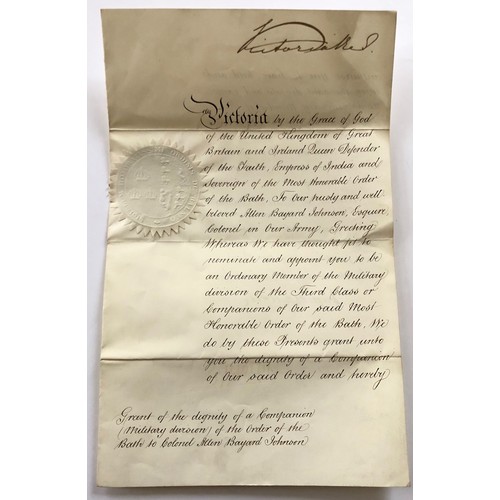 Victoria R I
Victoria by the Grace of God
of the United Kingdom of Great
Britain and Ireland Queen Defender
of the Faith, Empress of India and
Sovereign of the Most Honorable Order
of the Bath, To Our trusty and well
beloved Allen Bayard Johnson, Esquire
Colonel in Our Army, Greeting
Whereas We have thought fit to
nominate and appoint you to be
an Ordinary Member of the Military
division of the Third Class or
Companions of Our said Most
Honorable Order of the Bath, We
do by these Presents grant unto
you the dignity of a Companion
of Our said Order and hereby
Grant of the dignity of a Companion
(Military division) of the Order of the
Bath to Colonel Allen Bayard Johnson